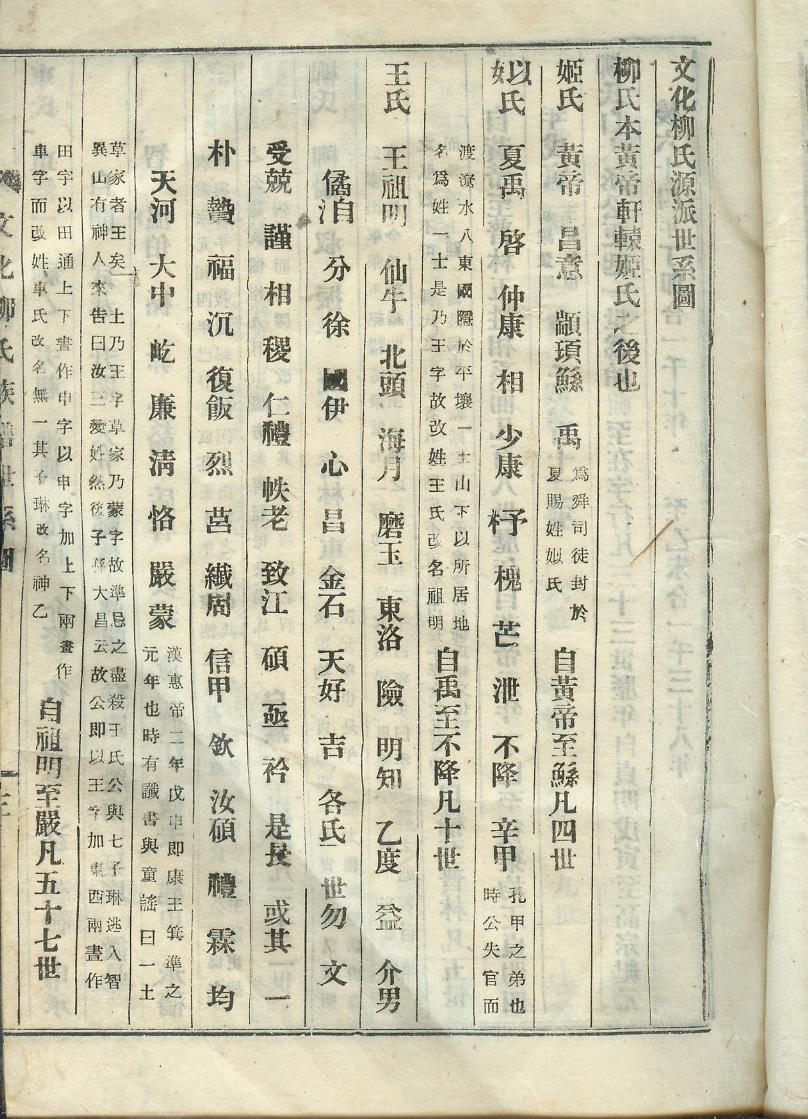 文化柳氏源派世系圖
柳氏本黃帝軒轅姬氏之後也
姬氏 黃帝 昌意 顓頊 鯀 禹 爲舜司徒封於
夏賜姓姒氏 自黃帝至鯀凡四世
姒氏 夏禹 啓 仲康 相 少康 杼 槐 芒 泄 不降 辛甲 孔甲之弟也
時公失官而
渡遼水入東國隱於平壤一土山下以所居地
名爲姓一士是乃王字故改姓王氏改名祖明 自禹至不降凡十世
王氏 王祖明 仙牛 北頭 海月 磨玉 東洛 險 明知 乙度 益 介男
僪洎 分 徐 國 伊 心 昌 金石 天好 吉 各氏 世勿 文
受兢 謹 相 稷 仁禮 帙老 致江 碩 亟 衿 是 或其 一
朴 贄 福 沉 復 飯 烈 莒 纖 周 信甲 欽 汝碩 禮 霖 均
天河 大中 屹 廉 淸 恪 嚴 蒙 漢惠帝二年戊申即康王箕準之
元年也時有讖書與童謠曰一土
草家者王矣 土乃王字草家乃蒙字故準忌之盡殺王氏公與七子琳逃入智
異山有神人來告曰汝三變姓然後子孫大昌云故公即以王字加東西兩畫作
田字以田通上下畫作申字以申字加上下兩畫作
車字而改姓車氏改名無一其子琳改名神乙 自祖明至嚴凡五十七世
文化柳氏族譜世系圖